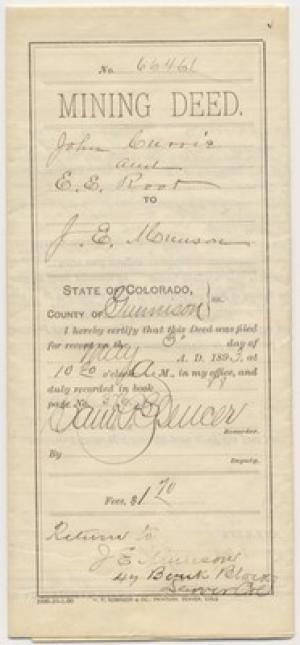 No. 66461
MINING DEED.
John Currie
and
E. E. Root
TO
J. E. Munson
STATE OF COLORADO,
COUNTY OF Gunnison ss.
I hereby certify that this Deed was filed
for record on the 5" day of
May A. D. 1893, at
10 20 o'clock A M., in my office, and
duly recorded in book
page No.
Spencer
Recorder.
By
Deputy.
Fees, $1 70
Return to
J E Munson
Bank Block
Denver Col